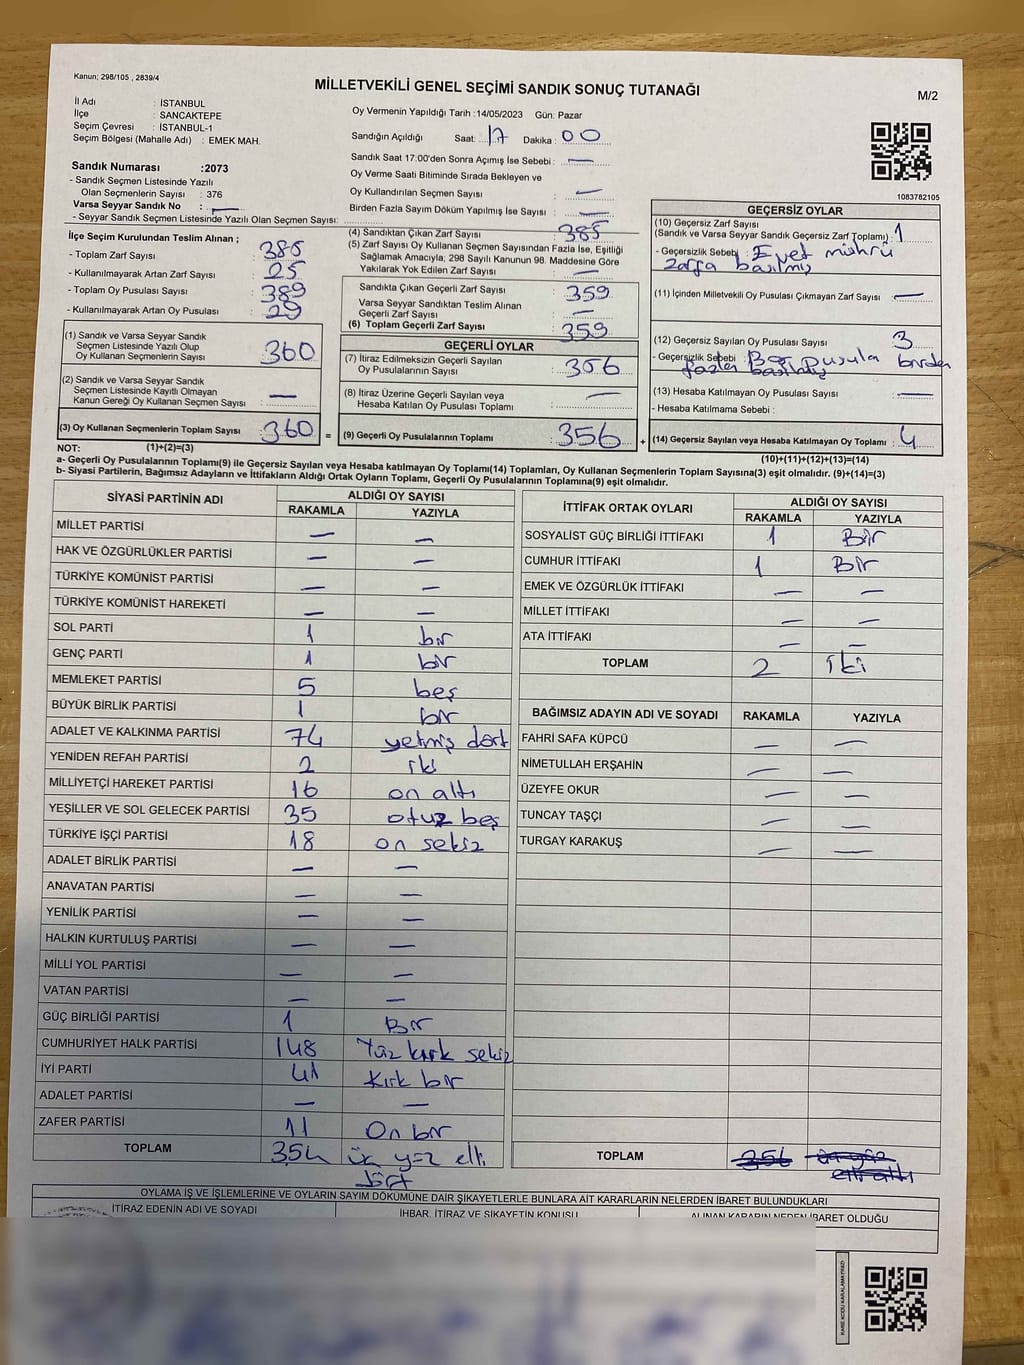 Kanun; 298/105 , 2839/4
MİLLETVEKİLİ GENEL SEÇİMİ SANDIK SONUÇ TUTANAĞI
M/2
İl Adı : İSTANBUL
İlçe : SANCAKTEPE
Seçim Çevresi : İSTANBUL-1
Seçim Bölgesi (Mahalle Adı) : EMEK MAH.
Sandık Numarası :2073
- Sandık Seçmen Listesinde Yazılı
Olan Seçmenlerin Sayısı : 376
Varsa Seyyar Sandık No : —
- Seyyar Sandık Seçmen Listesinde Yazılı Olan Seçmen Sayısı:
Oy Vermenin Yapıldığı Tarih :14/05/2023 Gün: Pazar
Sandığın Açıldığı Saat: 17 Dakika : 00
Sandık Saat 17:00'den Sonra Açımış İse Sebebi : —
Oy Verme Saati Bitiminde Sırada Bekleyen ve
Oy Kullandırılan Seçmen Sayısı —
Birden Fazla Sayım Döküm Yapılmış İse Sayısı : —
1083782105
İlçe Seçim Kurulundan Teslim Alınan ;
- Toplam Zarf Sayısı : 385
- Kullanılmayarak Artan Zarf Sayısı : 25
- Toplam Oy Pusulası Sayısı : 389
- Kullanılmayarak Artan Oy Pusulası : 29
(1) Sandık ve Varsa Seyyar Sandık
Seçmen Listesinde Yazılı Olup
Oy Kullanan Seçmenlerin Sayısı : 360
(2) Sandık ve Varsa Seyyar Sandık
Seçmen Listesinde Kayıtlı Olmayan
Kanun Gereği Oy Kullanan Seçmen Sayısı : —
(3) Oy Kullanan Seçmenlerin Toplam Sayısı : 360
(4) Sandıktan Çıkan Zarf Sayısı : 385
(5) Zarf Sayısı Oy Kullanan Seçmen Sayısından Fazla İse, Eşitliği
Sağlamak Amacıyla; 298 Sayılı Kanunun 98. Maddesine Göre
Yakılarak Yok Edilen Zarf Sayısı : —
Sandıkta Çıkan Geçerli Zarf Sayısı : 359
Varsa Seyyar Sandıktan Teslim Alınan
Geçerli Zarf Sayısı : —
(6) Toplam Geçerli Zarf Sayısı : 359
GEÇERLİ OYLAR
(7) İtiraz Edilmeksizin Geçerli Sayılan
Oy Pusulalarının Sayısı : 356
(8) İtiraz Üzerine Geçerli Sayılan veya
Hesaba Katılan Oy Pusulası Toplamı : —
= (9) Geçerli Oy Pusulalarının Toplamı : 356
GEÇERSİZ OYLAR
(10) Geçersiz Zarf Sayısı
(Sandık ve Varsa Seyyar Sandık Geçersiz Zarf Toplamı) : 1
- Geçersizlik Sebebi : Evet mührü
zarfa basılmış
(11) İçinden Milletvekili Oy Pusulası Çıkmayan Zarf Sayısı : —
(12) Geçersiz Sayılan Oy Pusulası Sayısı : 3
- Geçersizlik Sebebi : pusula birden
fazla basılmış
(13) Hesaba Katılmayan Oy Pusulası Sayısı : —
- Hesaba Katılmama Sebebi :
+ (14) Geçersiz Sayılan veya Hesaba Katılmayan Oy Toplamı : 4
NOT: (1)+(2)=(3)
(10)+(11)+(12)+(13)=(14)
a- Geçerli Oy Pusulalarının Toplamı(9) ile Geçersiz Sayılan veya Hesaba katılmayan Oy Toplamı(14) Toplamları, Oy Kullanan Seçmenlerin Toplam Sayısına(3) eşit olmalıdır. (9)+(14)=(3)
b- Siyasi Partilerin, Bağımsız Adayların ve İttifakların Aldığı Ortak Oyların Toplamı, Geçerli Oy Pusulalarının Toplamına(9) eşit olmalıdır.
SİYASİ PARTİNİN ADI ALDIĞI OY SAYISI
RAKAMLA YAZIYLA
MİLLET PARTİSİ — —
HAK VE ÖZGÜRLÜKLER PARTİSİ — —
TÜRKİYE KOMÜNİST PARTİSİ — —
TÜRKİYE KOMÜNİST HAREKETİ — —
SOL PARTİ 1 bir
GENÇ PARTİ 1 bir
MEMLEKET PARTİSİ 5 beş
BÜYÜK BİRLİK PARTİSİ 1 bir
ADALET VE KALKINMA PARTİSİ 74 yetmiş dört
YENİDEN REFAH PARTİSİ 2 iki
MİLLİYETÇİ HAREKET PARTİSİ 16 on altı
YEŞİLLER VE SOL GELECEK PARTİSİ 35 otuz beş
TÜRKİYE İŞÇİ PARTİSİ 18 on sekiz
ADALET BİRLİK PARTİSİ — —
ANAVATAN PARTİSİ — —
YENİLİK PARTİSİ — —
HALKIN KURTULUŞ PARTİSİ — —
MİLLİ YOL PARTİSİ — —
VATAN PARTİSİ — —
GÜÇ BİRLİĞİ PARTİSİ 1 Bir
CUMHURİYET HALK PARTİSİ 148 Yüz kırk sekiz
İYİ PARTİ 41 Kırk bir
ADALET PARTİSİ — —
ZAFER PARTİSİ 11 On bir
TOPLAM 354 üç yüz elli
dört
İTTİFAK ORTAK OYLARI ALDIĞI OY SAYISI
RAKAMLA YAZIYLA
SOSYALİST GÜÇ BİRLİĞİ İTTİFAKI 1 Bir
CUMHUR İTTİFAKI 1 Bir
EMEK VE ÖZGÜRLÜK İTTİFAKI — —
MİLLET İTTİFAKI — —
ATA İTTİFAKI — —
TOPLAM 2 iki
BAĞIMSIZ ADAYIN ADI VE SOYADI RAKAMLA YAZIYLA
FAHRİ SAFA KÜPCÜ — —
NİMETULLAH ERŞAHİN — —
ÜZEYFE OKUR — —
TUNCAY TAŞÇI — —
TURGAY KARAKUŞ — —
TOPLAM 356 üç yüz
elli altı
OYLAMA İŞ VE İŞLEMLERİNE VE OYLARIN SAYIM DÖKÜMÜNE DAİR ŞİKAYETLERLE BUNLARA AİT KARARLARIN NELERDEN İBARET BULUNDUKLARI
İTİRAZ EDENİN ADI VE SOYADI İHBAR, İTİRAZ VE ŞİKAYETİN KONUSU ALINAN KARARIN NEDEN İBARET OLDUĞU